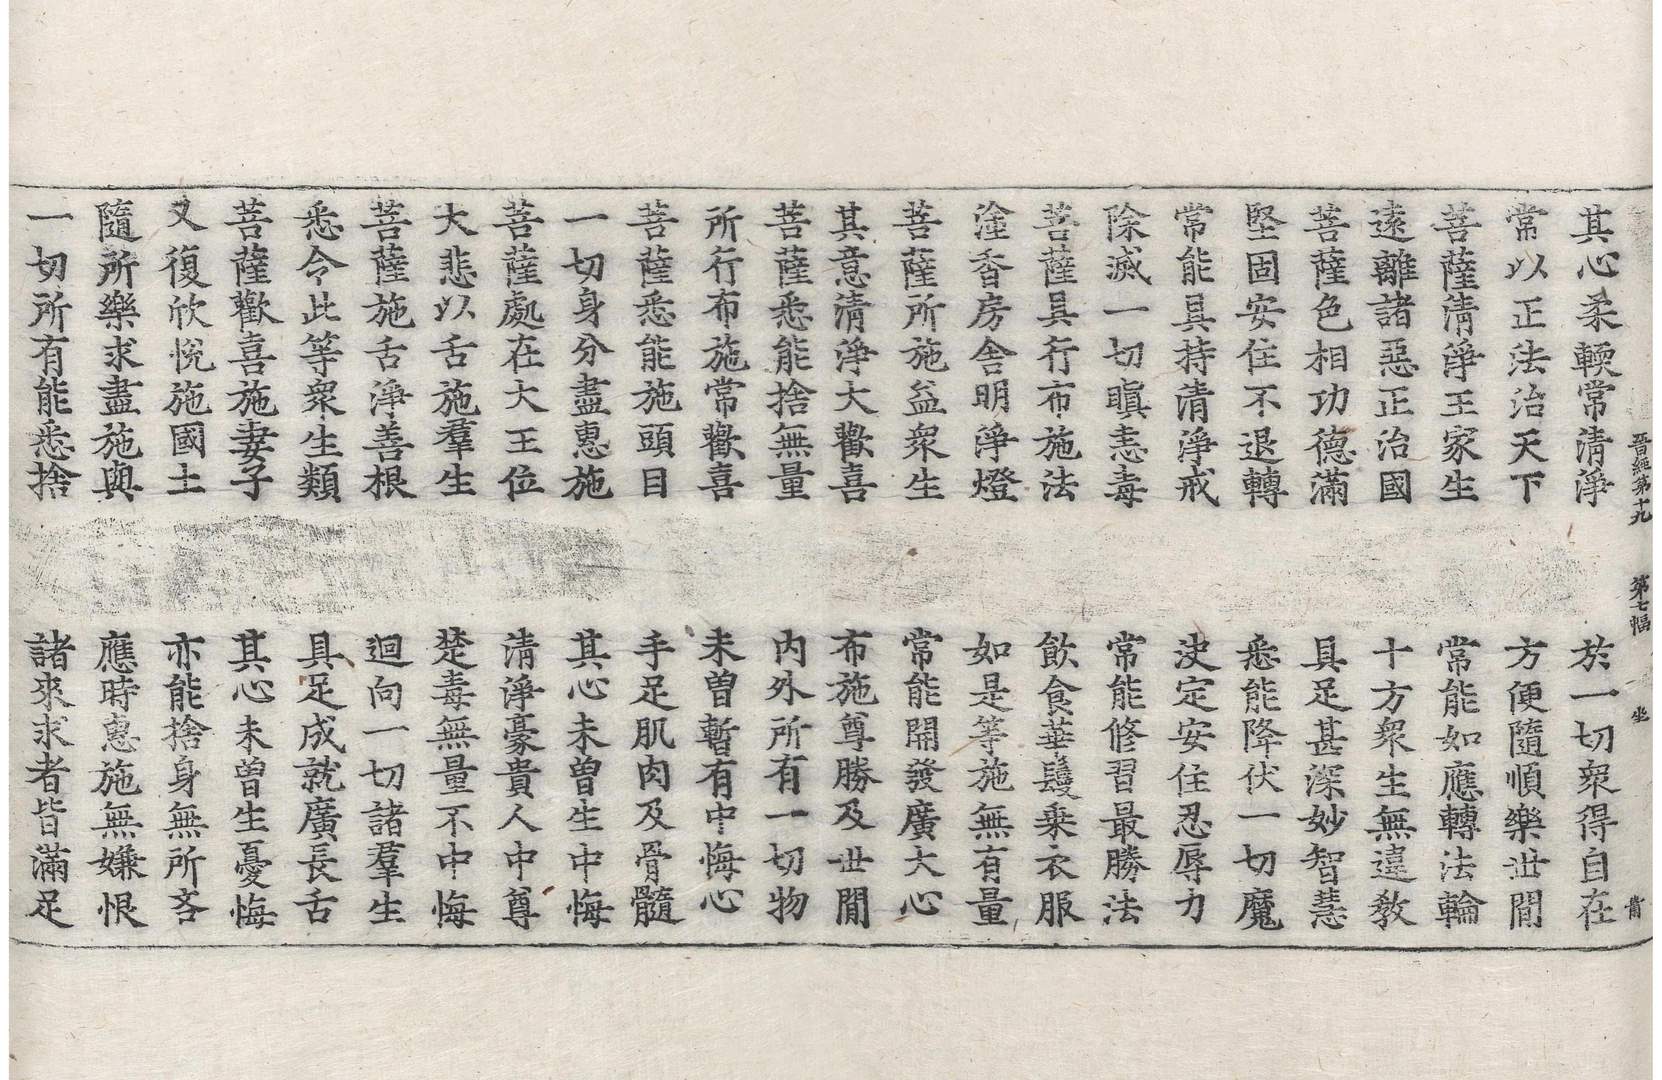 晉經第十九　第七幅　坐
其心柔輭常清淨　於一切衆得自在
常以正法治天下　方便隨順樂世間
菩薩清淨王家生　常能如應轉法輪
遠離諸惡正治國　十方衆生無違教
菩薩色相功德滿　具足甚深妙智慧
堅固安住不退轉　悉能降伏一切魔
常能具持清淨戒　決定安住忍辱力
除滅一切瞋恚毒　常能修習最勝法
菩薩具行布施法　飲食華鬘乗衣服
塗香房舍明淨燈　如是等施無有量
菩薩所施益衆生　常能開發廣大心
其意清淨大歡喜　布施尊勝及世間
菩薩悉能捨無量　內外所有一切物
所行布施常歡喜　未曾暫有中悔心
菩薩悉能施頭目　手足肌肉及骨髓
一切身分盡惠施　其心未曾生中悔
菩薩處在大王位　清淨豪貴人中尊
大悲以舌施羣生　楚毒無量不中悔
菩薩施舌淨善根　迴向一切諸羣生
悉令此等衆生類　具足成就廣長舌
菩薩歡喜施妻子　其心未曾生憂悔
又復欣悅施國土　亦能捨身無所吝
隨所樂求盡施與　應時惠施無嫌恨
一切所有能悉捨　諸來求者皆滿足